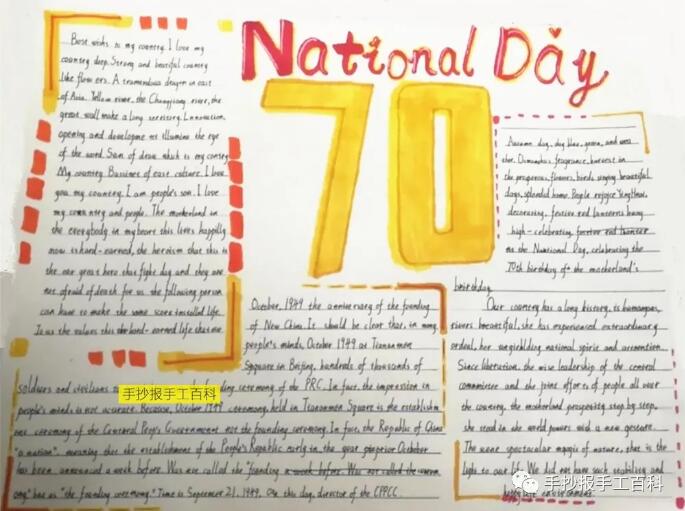 National Day
70
Best wishs to my country. I love my
country deep. Strong and beatiful country
like flowers. A tremendous dragon in east
of Asia. Yellow river, the Changjiang river, the
great wall make a long territory. Innovation,
opening and development illumine the eye
of the word. Son of
My country. Bussines of east culture. I love
you my country. I am people's son. I love
my country and people. The motherland in
the everybody in my heart this lives happilly
now is hard-earned, the heroism that this is
the one great hero that fight day and they are
not afraid of death for us the following person
can have to make the some
Is us the values this hard-earned life that me.
October, 1949 the anniversary of the founding
of New China. It should be clear that, in many
people's minds, October 1949 at Tiananmen
Spquare in Beijing, hundreds of thousands of
soldiers and civilians ceremony of the PRC. In face, the impression in
手抄报手工百科
people's minds is not accurate. Because, October 1949 ceremony held in Tiananmen Square is the establish
ment ceremony of the Government not the founding ceremony. In face, the Republic of China
"a nation", meaning that the establishment of the People's Republic early in the year Octorber
has been announced a week before. Was not called the "founding
ong" but as "the founding ceremony." Time is September 21, 1949. On this day, director of the CPPCC.
Autumn day, sky blue, green, and
Osmanthus fragrance, harvest in
the prosperous, flowers, birds singing beautiful
days, splendid home. People rejoice
decorating, festive red lanterns hung
high-celebrating festive red
the National Day, celebrating the
70th birthday of the motherland's
breirthday
Our country has a long history, is
rivers beautiful, she has experienced extraordinary
ordeal, her unyielding national spirit and
Since liberation, the wise leadership of the central
committee and the joint efforts of people all over
the country, the motherland prosperity step by step,
she stand in the world powers with a new gesture.
The wone spectacular magic of nature, that is the
light to our life. We did not have such stability and
happy life
手抄报手工百科